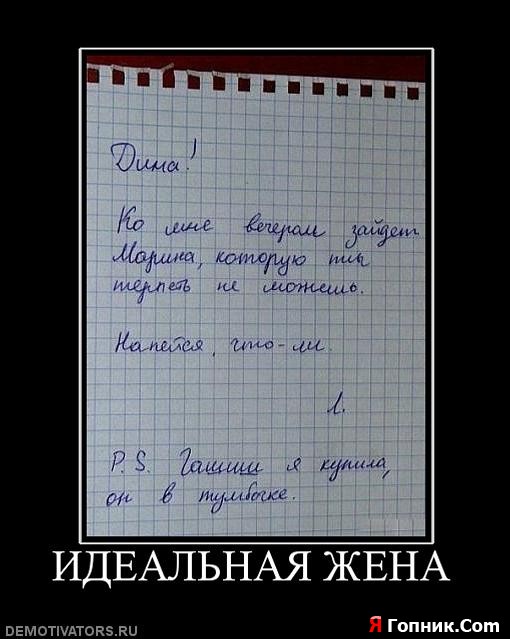 Дима!
Ко мне вечером зайдет
Марина, которую ты
терпеть не можешь.
Напейся, что-ли.
Л.
P.S. Гашиш я купила,
он в тумбочке.
ИДЕАЛЬНАЯ ЖЕНА
DEMOTIVATORS.RU
Я Гопник.Com